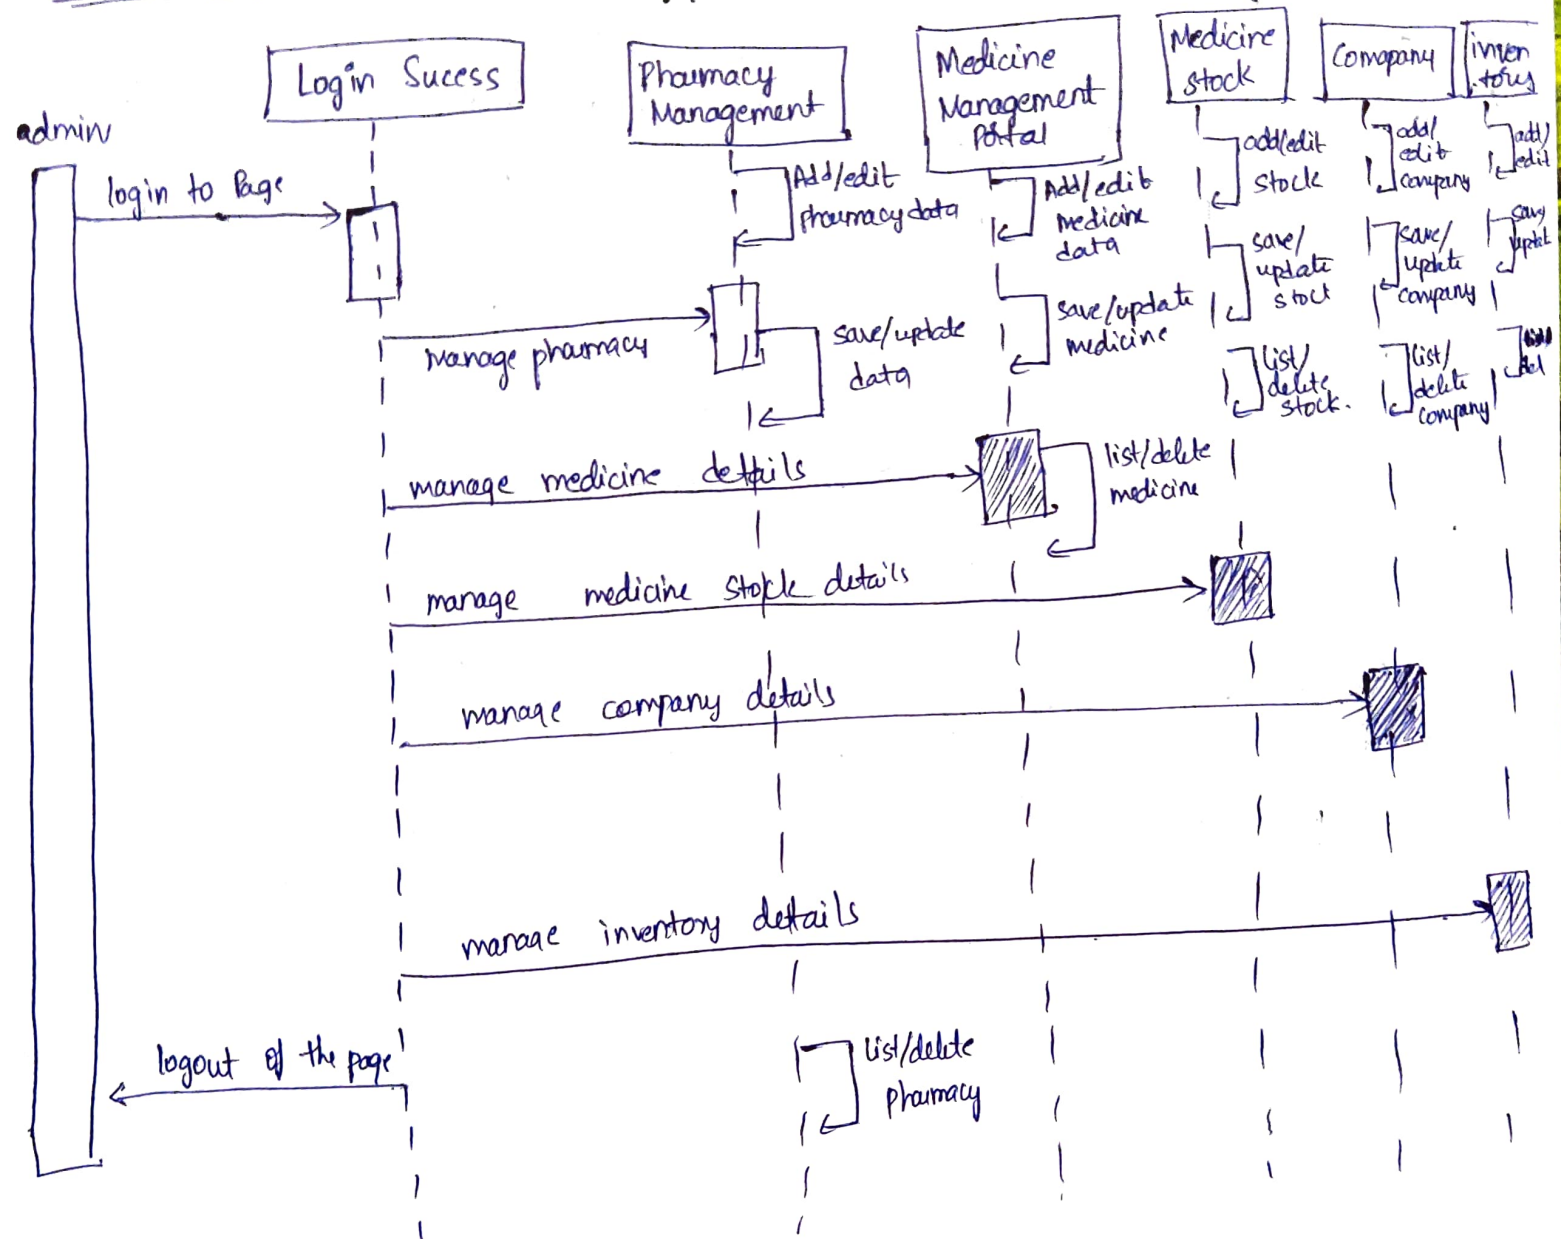 Login Sucess
Pharmacy
Management
Medicine
Management
Portal
Medicine
stock
Comapany
inven
tory
admin
login to Page
Add/edit
Pharmacy data
Add/edit
medicine
data
add/edit
stock
add/
edit
company
add/
edit
save/
update
stock
save/
update
company
save
updat
manage pharmacy
save/update
data
save/update
medicine
list/
delete
stock.
list/
delete
company
del
manage medicine dettils
list/delete
medicine
manage medicine stock details
manage company details
manage inventory dettails
logout of the page
list/delete
pharmacy